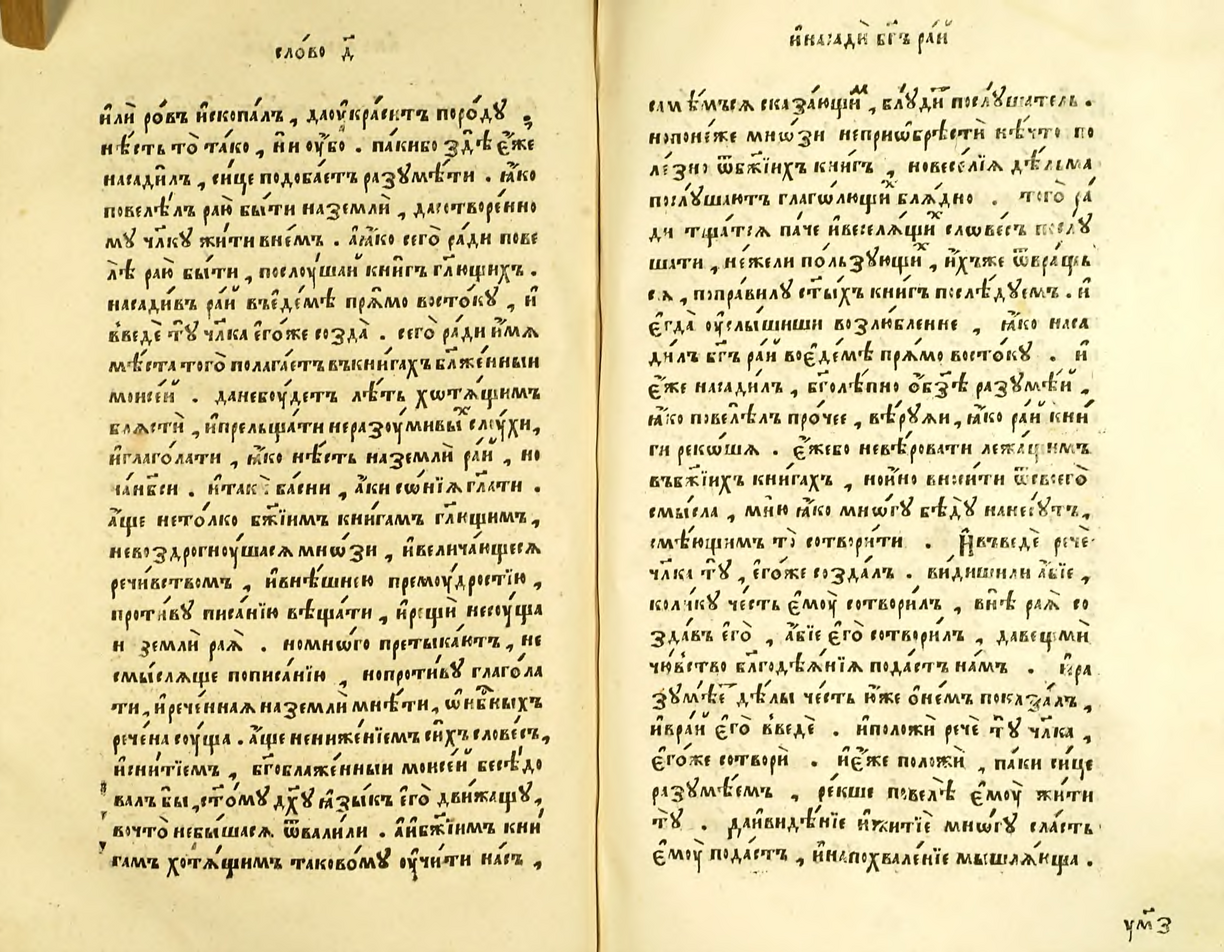 сло́во д҃
и҆лѝ ро́въ и҆скопа́лъ , даоу҆кра́ситъ поро́дꙋ ,
нѣ́сть то̀ та́ко , нѝ оу҆́бо . па́кибо здѣ̀ є҆́же
насади́лъ , си́це подоба́етъ разꙋмѣ́ти . ꙗ҆́ко
повелѣ́лъ раю̀ бы́ти наземлѝ , дасотворе́нно
мꙋ̀ чл҃кꙋ жи́ти вне́мъ . а҆ꙗ҆́ко сего̀ ра́ди пове
лѣ̀ раю̀ бы́ти , послоу́шай кни́гъ гл҃ющихъ .
насади́въ ра́й въє҆де́мѣ прѧ́мо восто́кꙋ , и҆
введѐ тꙋ̀ чл҃ка є҆го́же созда̀ . сего̀ ра́ди и҆́мѧ
мѣ́ста того̀ полага́етъ въкни́гахъ бл҃же́нныи
моисе́й . данебоу́детъ лѣ́ть хѡтѧ́щимъ
блѧ́сти , и҆прельща́ти неразоу́мивыⷯ слоу́хи,
и҆глаго́лати , ꙗ҆́ко нѣ́сть наземлѝ ра́й , но
нан҃бси . и҆так ба́сни , а҆́ки со́нїѧ гл҃ати .
а҆́ще нето́лко бж҃їимъ кни́гамъ гл҃щимъ,
невоздрогноу́шасѧ мно́зи , и҆велича́ющесѧ
речи́вствомъ , и҆внѣ́шнею премоу́дростїю ,
проти́вꙋ писа́нїю вѣща́ти , и҆рещѝ несоу́ща
н земли̇̀ раѧ̀ . номно́го претыка́ютъ , не
смы́слѧще пописа́нїю , нопроти́вꙋ глаго́ла
ти, и҆рече́ннаѧ наземлѝ мнѣ́ти, ѡ҆нб҃ныхъ
рече́на соу́ща . а҆́ще ненижє́нїемъ си́хъ слове́съ,
и҆сни́тїемъ , бг҃облаже́нныи моисе́й бесѣ́до
валъ бы̀ , ст҃о́мꙋ дх҃ꙋ ꙗ҆зы́къ є҆го̀ дви́жащꙋ,
во́что небы́шасѧ ѿвали́ли . а҆ибж҃їимъ кни́
гамъ хотѧ́щимъ таково́мꙋ оу҆чи́ти на́съ ,
и҆насадѝ бг҃ъ ра́й
самѣ́мъсѧ сказа́ющиⷨ , блꙋ́диⷮ послꙋ́шатель .
нопоне́же мно́зи неприѡ҆брѣ́сти нѣ́что по
ле́зно ѿбж҃їихъ кни́гъ , новесе́лїѧ дѣ́льма
послꙋ́шаютъ глаго́лющиⷯ блѧ́дно . того̀ ра́
ди тща́тсѧ па́че и҆веселѧ́щиⷯ слѡве́съ послꙋ́
шати , не́жели по́льзꙋющиⷯ , и҆́хъже ѿвра́щь
сѧ , попра́вилꙋ ст҃ы́хъ кни́гъ послѣ́дꙋемъ . и҆
є҆гда̀ оу҆слы́шиши возлю́бление , ꙗ҆́ко наса
ди́лъ бг҃ъ ра́й воє҆де́мѣ прѧ́мо восто́кꙋ . и҆
є҆́же насади́лъ , бг҃олѣ́пно о҆́бзѣ разꙋмѣ́й ,
ꙗ҆́ко повелѣ́лъ про́чее , вѣ́рꙋжи , ꙗ҆́ко ра́й кни́
ги реко́шѧ . є҆́жебо невѣ́ровати лежа́щимъ
въбж҃їихъ кни́гахъ , нои҆́но вноси́ти ѿсвоего̀
смы́сла , мню̀ ꙗ҆́ко мно́гꙋ бѣ́дꙋ нанесꙋ́тъ,
смѣ́ющимъ то̀ сотвори́ти . И҆въведѐ речѐ
чл҃ка тꙋ̀ , є҆го́же созда́лъ . ви́дишили а҆́бїе ,
коли́кꙋ че́сть є҆моу̀ сотвори́лъ , внѣ̀ раѧ̀ со
зда́въ є҆го̀ , а҆́бїе є҆го̀ сотвори́лъ , давещмѝ
чю́вство бл҃годѣѧ́нїѧ пода́стъ на́мъ . и҆ра
зꙋмѣ́еⷨ дѣ́лы че́сть ю҆́же о҆не́мъ показа́лъ ,
и҆вра́й є҆го̀ введѐ . и҆положѝ речѐ тꙋ̀ чл҃ка ,
є҆го́же сотворѝ . и҆є҆́же положѝ , па́ки си́це
разꙋмѣ́емъ , ре́кше повелѣ̀ є҆моу̀ жи́ти
тꙋ̀ . да́йвидѣ́нїе и҆жи́тїе мно́гꙋ сла́сть
є҆моу̀ пода́стъ , и҆напохвале́нїе мы́шлѧюща .
ум҃з